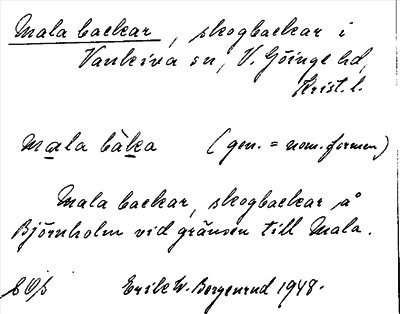 Mala backar, skogbackar i
Vankiva sn, V. Göinge hd,
Krist. l.
Mala bàka (gen. = nom. formen)
Mala backar, skogbackar å
Björnholm vid gränsen till Mala.
Erik W. Bergenrud 1948.